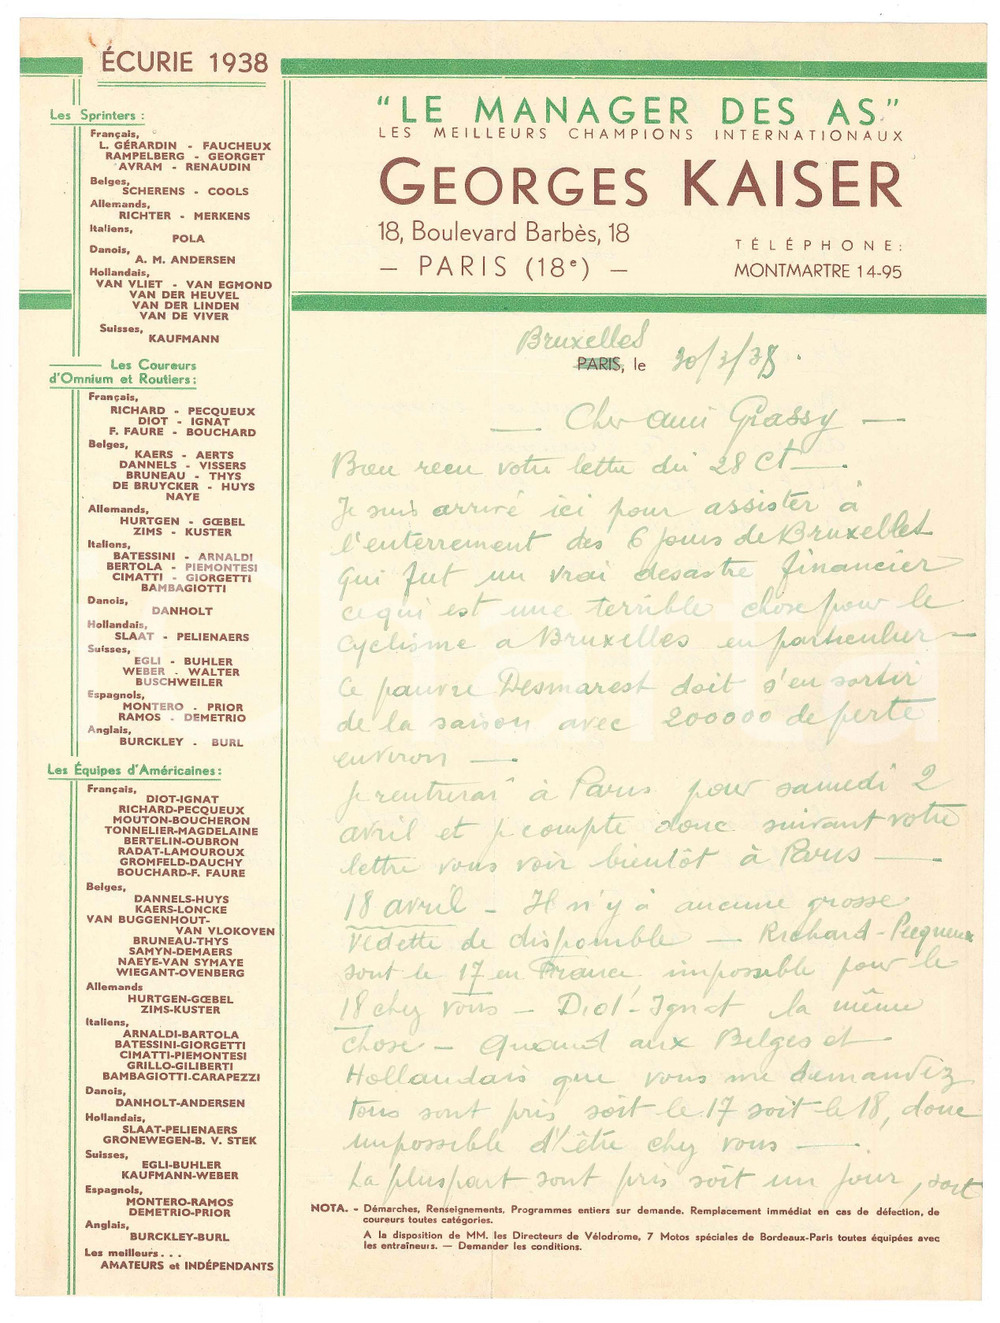 ÉCURIE 1938
Les Sprinters :
Français,
L. GÉRARDIN - FAUCHEUX
RAMPELBERG - GEORGET
AVRAM - RENAUDIN
Belges,
SCHERENS - COOLS
Allemands,
RICHTER - MERKENS
Italiens,
POLA
Danois,
A. M. ANDERSEN
Hollandais,
VAN VLIET - VAN EGMOND
VAN DER HEUVEL
VAN DER LINDEN
VAN DE VIVER
Suisses,
KAUFMANN
Les Coureurs
d'Omnium et Routiers :
Français,
RICHARD - PECQUEUX
DIOT - IGNAT
F. FAURE - BOUCHARD
Belges,
KAERS - AERTS
DANNELS - VISSERS
BRUNEAU - THYS
DE BRUYCKER - HUYS
NAYE
Allemands,
HURTGEN - GŒBEL
ZIMS - KUSTER
Italiens,
BATESSINI - ARNALDI
BERTOLA - PIEMONTESI
CIMATTI - GIORGETTI
BAMBAGIOTTI
Danois,
DANHOLT
Hollandais,
SLAAT - PELIENAERS
Suisses,
EGLI - BUHLER
WEBER - WALTER
BUSCHWEILER
Espagnols,
MONTERO - PRIOR
RAMOS - DEMETRIO
Anglais,
BURCKLEY - BURL
Les Équipes d'Américaines :
Français,
DIOT-IGNAT
RICHARD-PECQUEUX
MOUTON-BOUCHERON
TONNELIER-MAGDELAINE
BERTELIN-OUBRON
RADAT-LAMOUROUX
GROMFELD-DAUCHY
BOUCHARD-F. FAURE
Belges,
DANNELS-HUYS
KAERS-LONCKE
VAN BUGGENHOUT-
VAN VLOKOVEN
BRUNEAU-THYS
SAMYN-DEMAERS
NAEYE-VAN SYMAYE
WIEGANT-OVENBERG
Allemands
HURTGEN-GŒBEL
ZIMS-KUSTER
Italiens,
ARNALDI-BARTOLA
BATESSINI-GIORGETTI
CIMATTI-PIEMONTESI
GRILLO-GILIBERTI
BAMBAGIOTTI-CARAPEZZI
Danois,
DANHOLT-ANDERSEN
Hollandais,
SLAAT-PELIENAERS
GRONEWEGEN-B. V. STEK
Suisses,
EGLI-BUHLER
KAUFMANN-WEBER
Espagnols,
MONTERO-RAMOS
DEMETRIO-PRIOR
Anglais,
BURCKLEY-BURL
Les meilleurs...
AMATEURS et INDÉPENDANTS
"LE MANAGER DES AS"
LES MEILLEURS CHAMPIONS INTERNATIONAUX
GEORGES KAISER
18, Boulevard Barbès, 18
— PARIS (18e) —
TÉLÉPHONE :
MONTMARTRE 14-95
Bruxelles
PARIS, le 30/3/38.
— Cher ami Grassy —
Bien reçu votre lettre du 28 Ct —.
Je suis arrivé ici pour assister à
l'enterrement des 6 jours de Bruxelles
qui fut un vrai desastre financier
ce qui est une terrible chose pour le
Cyclisme a Bruxelles en particulier —
Ce pauvre Desmarest doit s'en sortir
de la saison avec 200000 de perte
environ —.
Je rentrerai à Paris pour samedi 2
avril et je compte donc suivant votre
lettre vous voir bientôt à Paris —.
18 avril - Il n'y à aucune grosse
vedette de disponible — Richard-Pecqueux
sont le 17 en France impossible pour le
18 chez vous — Diot-Ignat la même
chose — Quand aux Belges et
Hollandais que vous me demandez
tous sont pris soit le 17 soit le 18, donc
impossible d'être chez vous —.
La pluspart sont pris soit un jour, soit
NOTA. - Démarches, Renseignements, Programmes entiers sur demande. Remplacement immédiat en cas de défection, de
coureurs toutes catégories.
A la disposition de MM. les Directeurs de Vélodrome, 7 Motos spéciales de Bordeaux-Paris toutes équipées avec
les entraîneurs. — Demander les conditions.